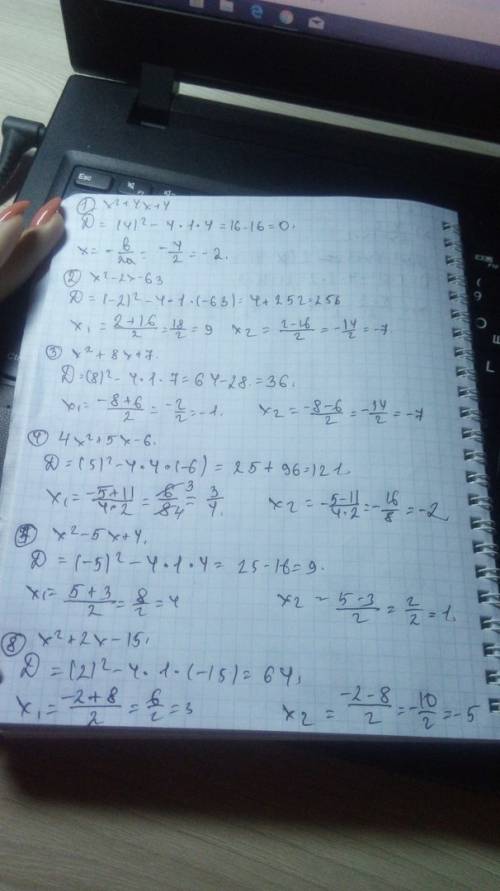 Esc
① x²+4x+4
D = (4)² - 4·1·4 = 16-16 = 0.
x = -b/2a = -4/2 = -2.
② x²-2x-63
D = (-2)² - 4·1·(-63) = 4+252 = 256
x₁ = (2+16)/2 = 18/2 = 9 x₂ = (2-16)/2 = -14/2 = -7.
③ x²+8x+7.
D = (8)² - 4·1·7 = 64-28 = 36.
x₁ = (-8+6)/2 = -2/2 = -1. x₂ = (-8-6)/2 = -14/2 = -7
④ 4x²+5x-6.
D = (5)² - 4·4·(-6) = 25+96 = 121.
x₁ = (-5+11)/(4·2) = 6/8 3/4 = 3/4. x₂ = (-5-11)/(4·2) = -16/8 = -2
x²-5x+4.
D = (-5)² - 4·1·4 = 25-16 = 9.
x₁ = (5+3)/2 = 8/2 = 4 x₂ = (5-3)/2 = 2/2 = 1.
⑧ x²+2x-15.
D = (2)² - 4·1·(-15) = 64.
x₁ = (-2+8)/2 = 6/2 = 3 x₂ = (-2-8)/2 = -10/2 = -5